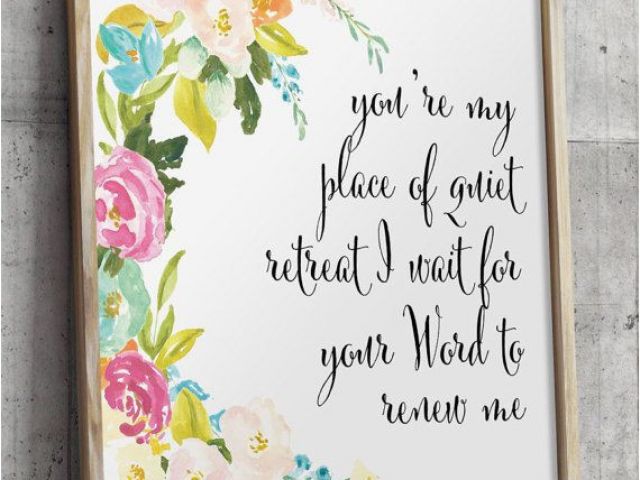 you're my
place of quiet
retreat I wait for
your Word to
renew me